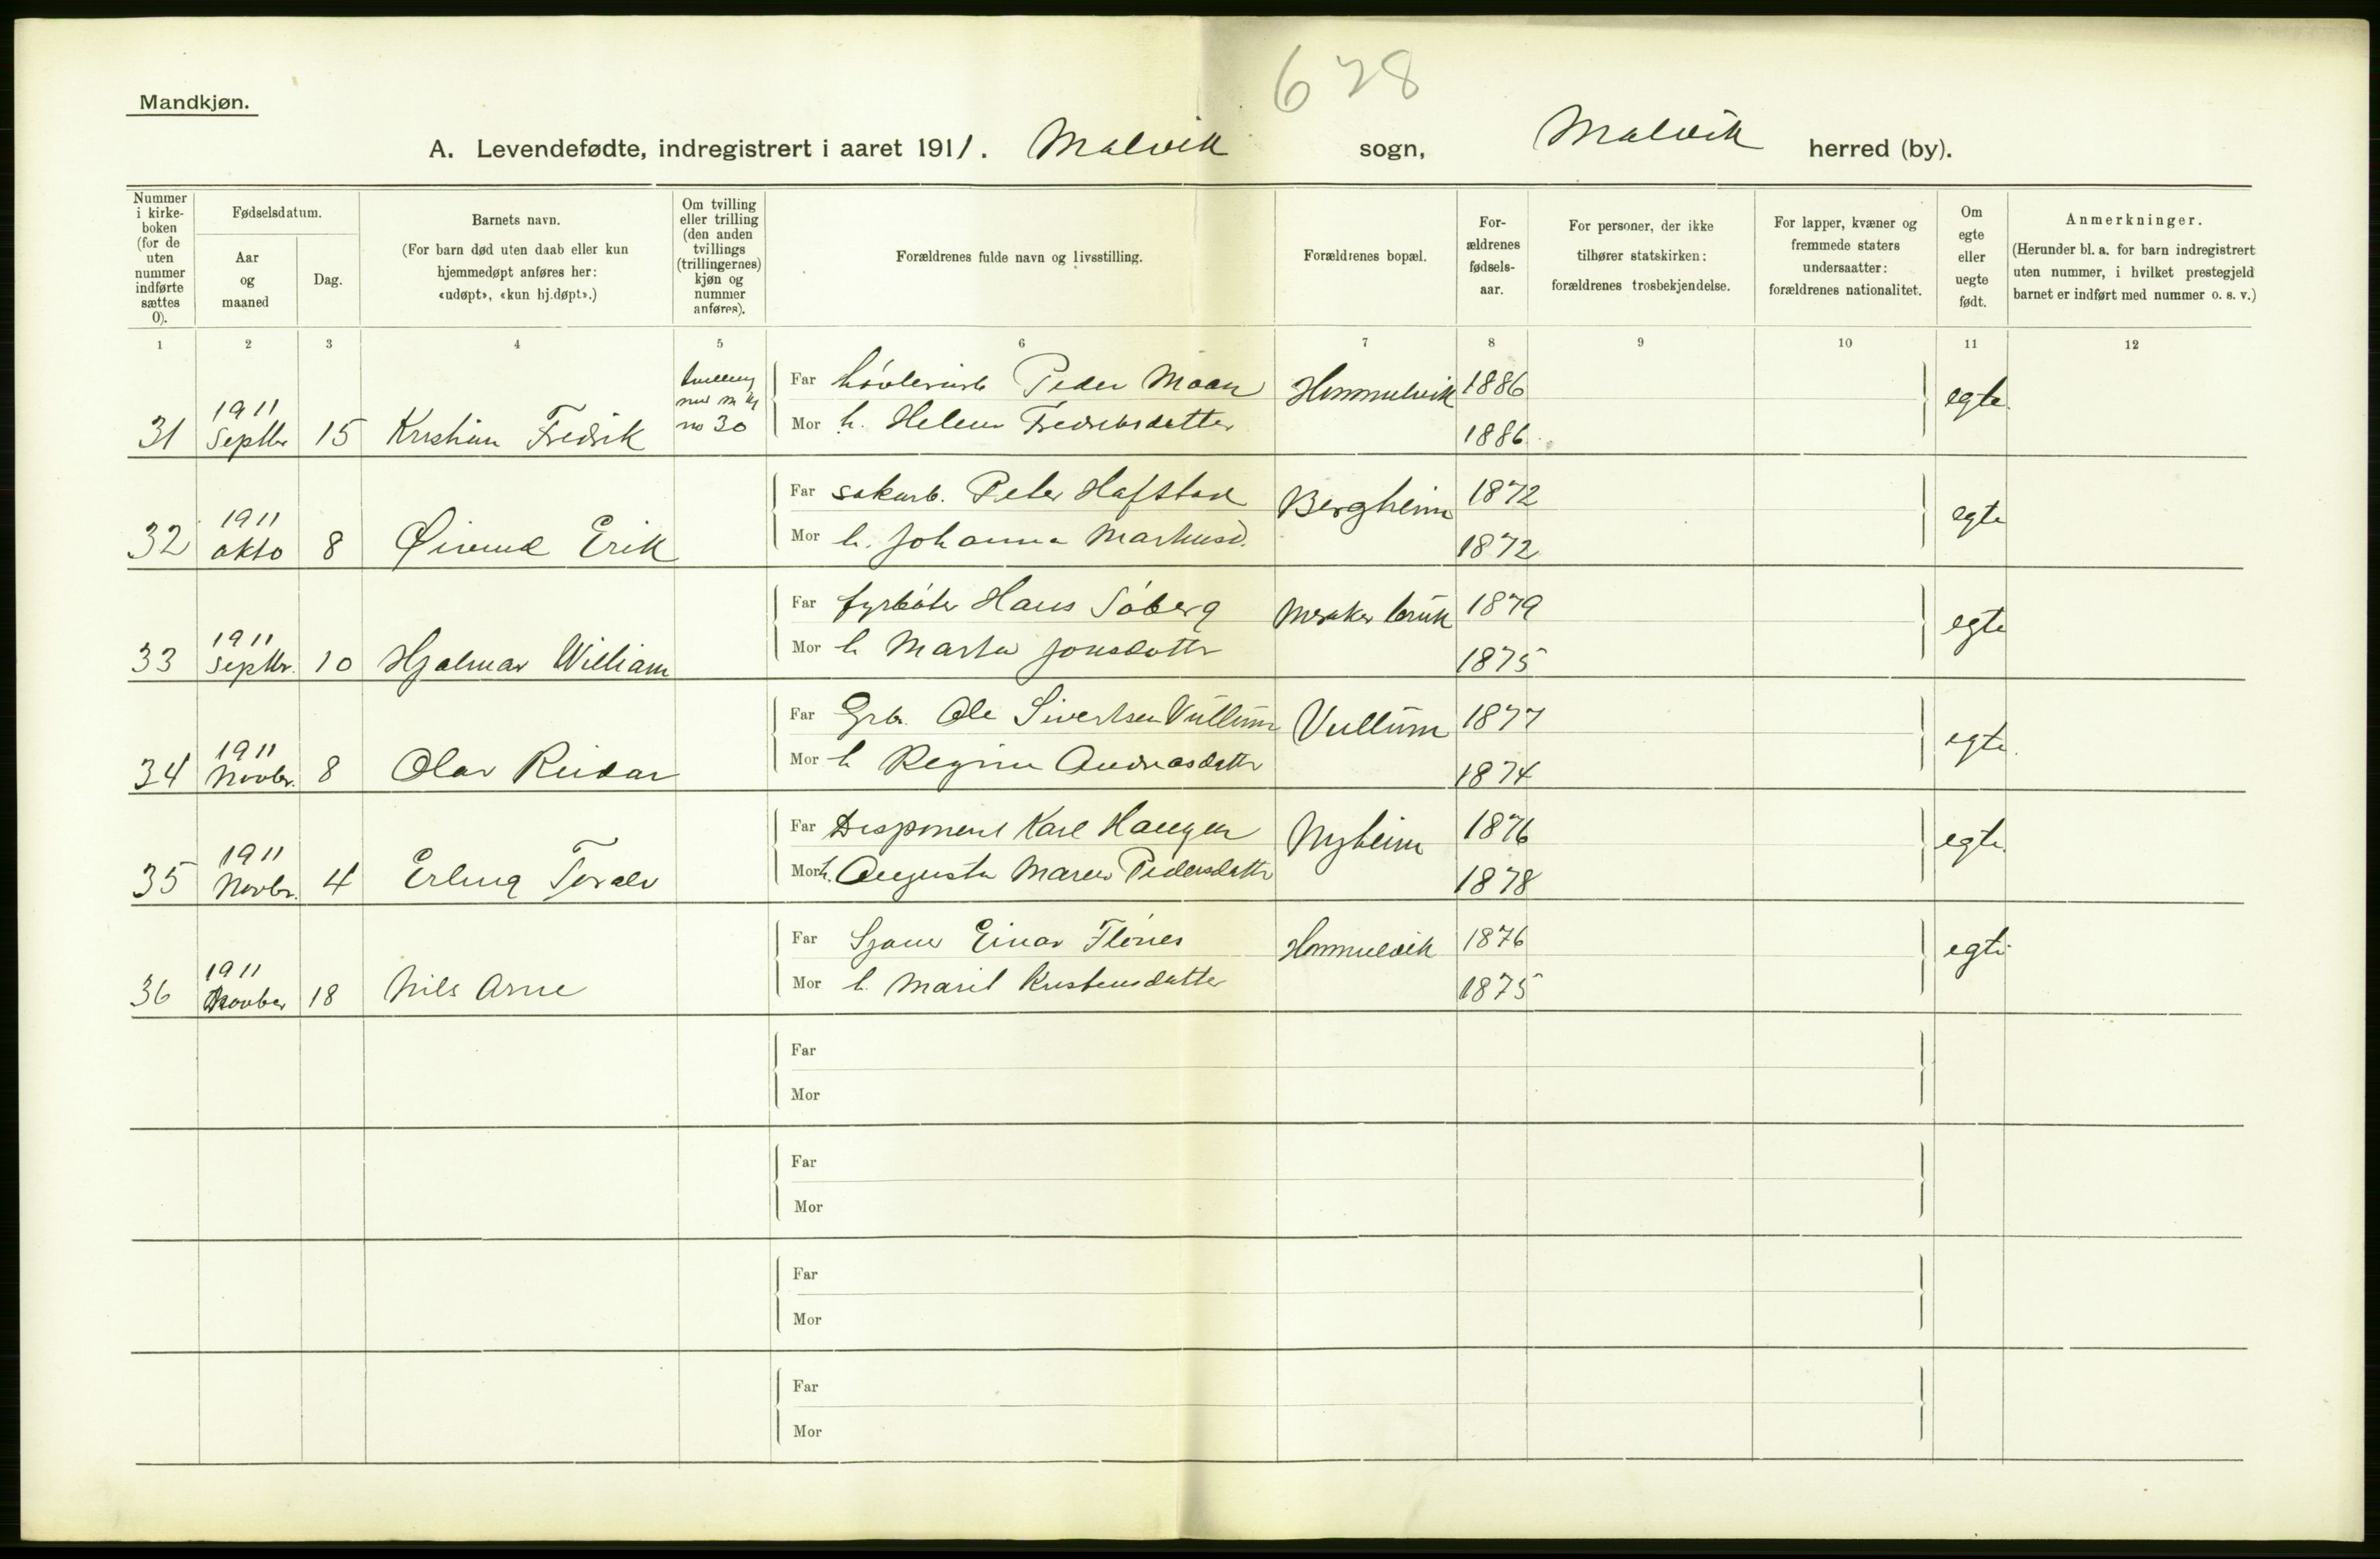 628
Mandkjøn.
A. Levendefødte, indregistrert i aaret 1911. Malvik sogn, Malvik herred (by).
Nummer i kirke-boken (for de uten nummer indførte sættes 0).
Fødselsdatum.
Aar og maaned
Dag.
Barnets navn.
(For barn død uten daab eller kun hjemmedøpt anføres her: «udøpt», «kun hj.døpt».)
Om tvilling eller trilling (den anden tvillings (trillingernes) kjøn og nummer anføres).
Forældrenes fulde navn og livsstilling.
Forældrenes bopæl.
For-ældrenes fødsels-aar.
For personer, der ikke tilhører statskirken: forældrenes trosbekjendelse.
For lapper, kvæner og fremmede staters undersaatter: forældrenes nationalitet.
Om egte eller uegte født.
Anmerkninger.
(Herunder bl. a. for barn indregistrert uten nummer, i hvilket prestegjeld barnet er indført med nummer o. s. v.)
1 2 3 4 5 6 7 8 9 10 11 12
31 1911 Septbr 15 Kristian Fredrik tvilling med m kj no 30
Far høvleriarb Peder Moan Hommelvik 1886 egte
Mor h. Helene Fredriksdatter 1886
32 1911 okto 8 Øivind Erik
Far sakarb. Peter Hafstad Bergheim 1872 egte
Mor h. Johanna Markusd. 1872
33 1911 Septbr. 10 Hjalmar William
Far fyrbøter Hans Søberg Meraker bruk 1879 egte
Mor h Marta Jonsdattr 1875
34 1911 Novbr. 8 Olav Reidar
Far Grb. Ole Sivertsen Vullum Vullum 1877 egte
Mor h Regine Andreasdattr 1874
35 1911 Novbr. 4 Erling Toralv
Far Disponent Karl Haugen Nyheim 1876 egte
Mor h. Augusta Maren Pedersdattr 1878
36 1911 Novber 18 Nils Arne
Far Einar Flønes Hommelvik 1876 egte
Mor h. Marit Kristensdatter 1875
Far
Mor
Far
Mor
Far
Mor
Far
Mor